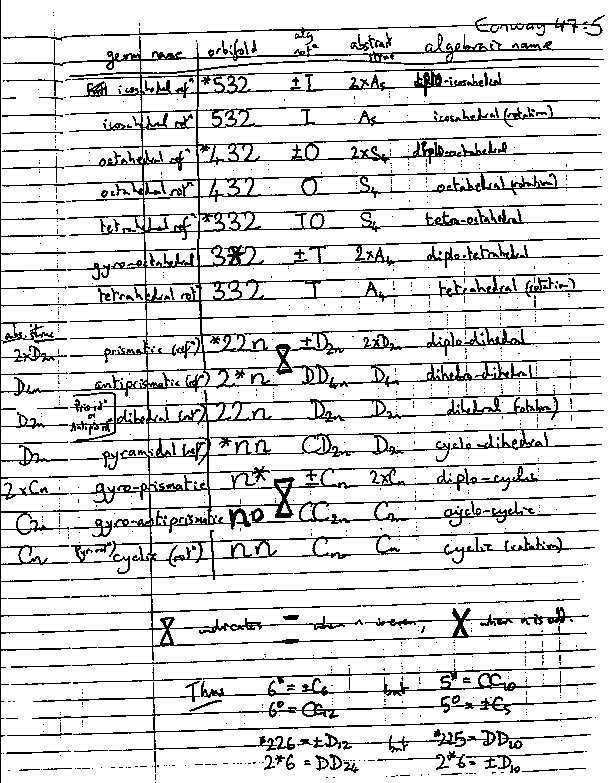 Conway 47:5
geom name orbifold alg notn abstract struc algebraic name
icosahedral refn *532 ±I 2×A5 diplo-icosahedral
icosahedral rotn 532 I A5 icosahedral (rotation)
octahedral refn *432 ±O 2×S4 diplo-octahedral
octahedral rotn 432 O S4 octahedral (rotation)
tetrahedral refn *332 TO S4 tetra-octahedral
gyro-octahedral 3*2 ±T 2×A4 diplo-tetrahedral
tetrahedral rotn 332 T A4 tetrahedral (rotation)
abs. struc
2×D2n prismatic (refn) *22n ±D2n 2×D2n diplo-dihedral
D4n antiprismatic (refn) 2*n DD4n D4n dihedro-dihedral
D2n dihedral (rotn) 22n D2n D2n dihedral (rotation)
D2n pyramidal (refn) *nn CD2n D2n cyclo-dihedral
2×Cn gyro-prismatic n* ±Cn 2×Cn diplo-cyclic
C2n gyro-antiprismatic no CC2n C2n cyclo-cyclic
Cn cyclic (rotn) nn Cn Cn cyclic (rotation)
indicates = when n is even, X when n is odd.
Thus 6* = ±C6 but 5* = CC10
6o = CC12 5o = ±C5
*226 = ±D12 but *225 = DD20
2*6 = DD24 2*6 = ±D10